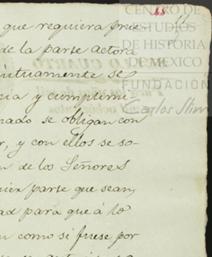 que requiera prue
de la parte actora
mutuamente se
cia y cumplimi
nado se obligan con
r, y con ellos se so-
n de los Señores
uiera parte que sean,
dad para que á lo
n como si fuese por
CENTRO DE
ESTUDIOS
DE HISTORIA
DE MEXICO
FUNDACIÓN
Carlos Slim